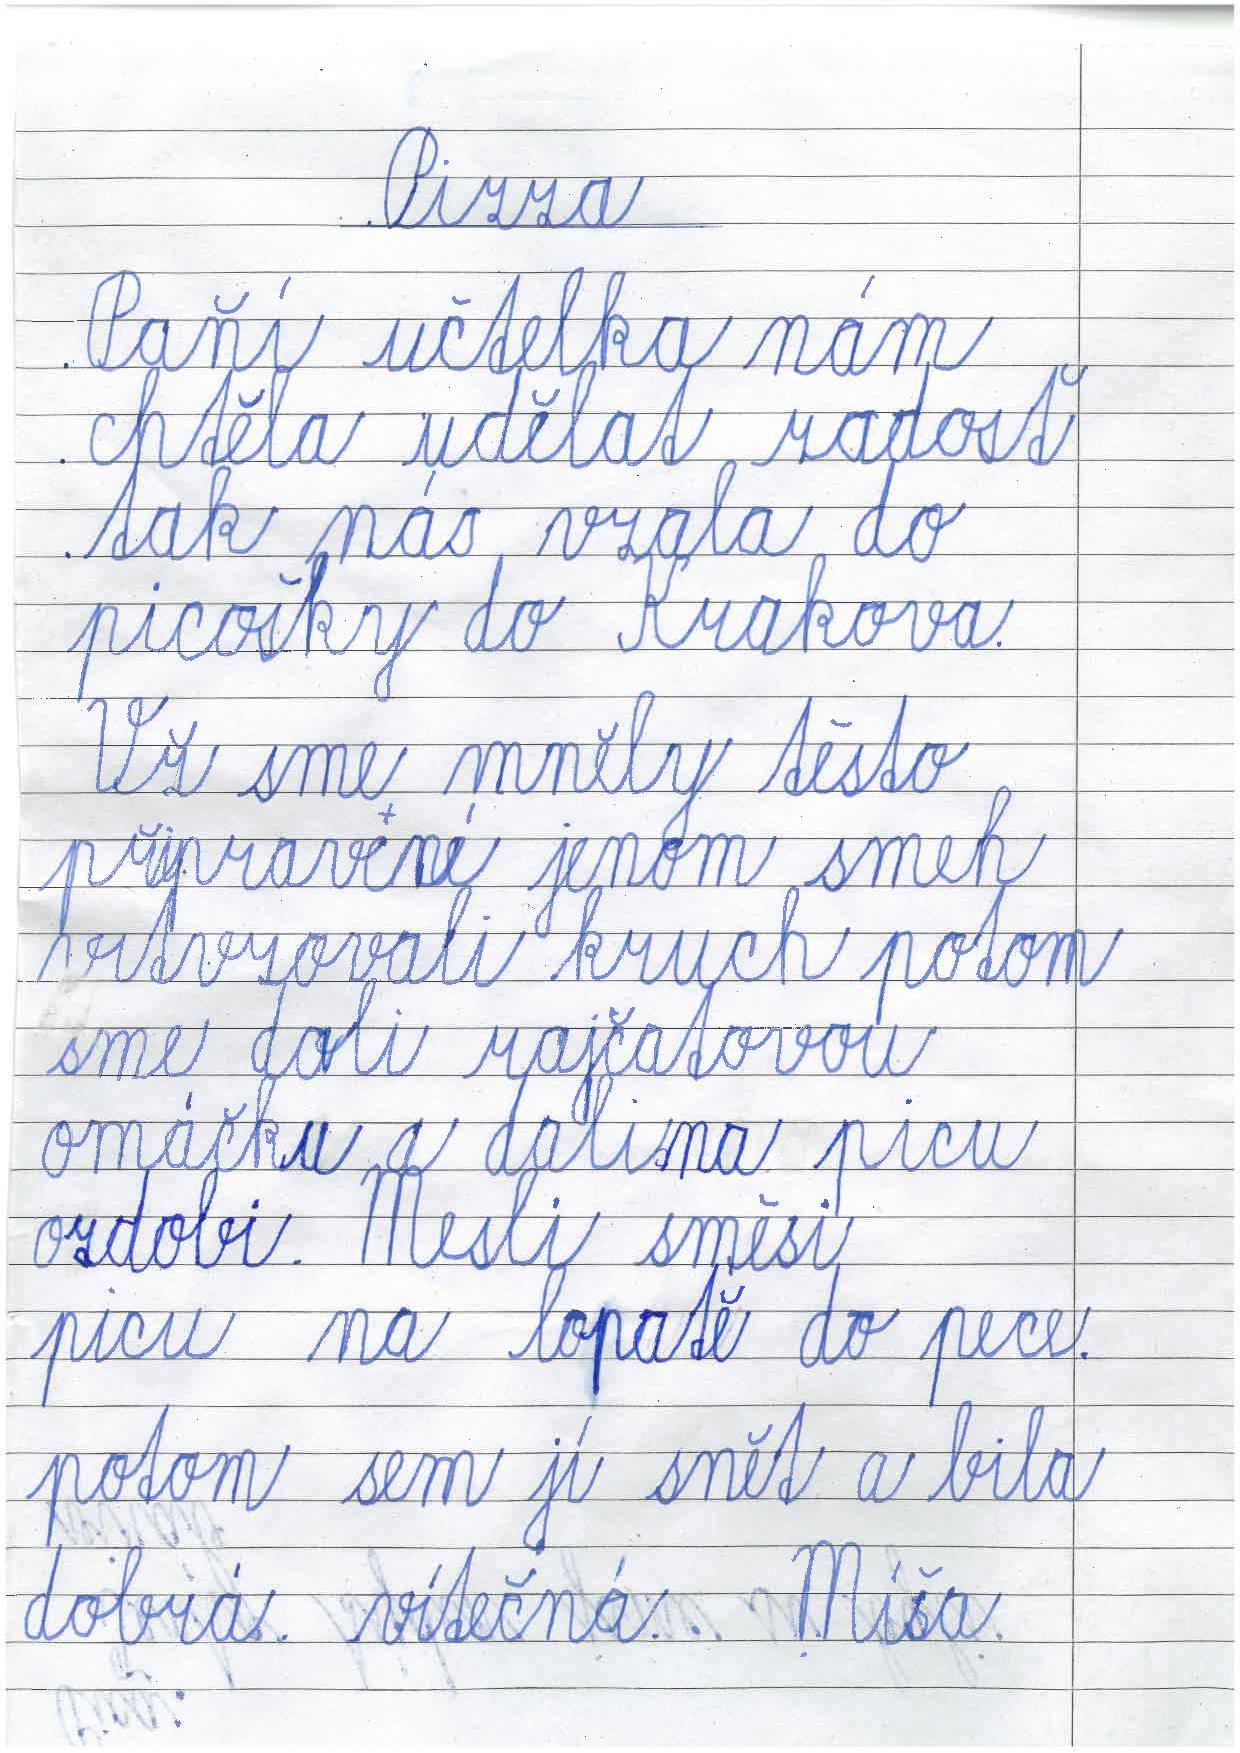 Pizza
Paňí učtelka nám
chtěla udělat radosť
tak nás vzala do
picošky do Krakova.
Už sme mněly těsto
připravené jenom smeh
kruch potom
sme dali rajčatovou
omáčku a dali na picu
ozdobi. Mesli směsi
picu na lopatě do pece.
potom sem jí snět a bila
dobrá. vítečná. Míša.